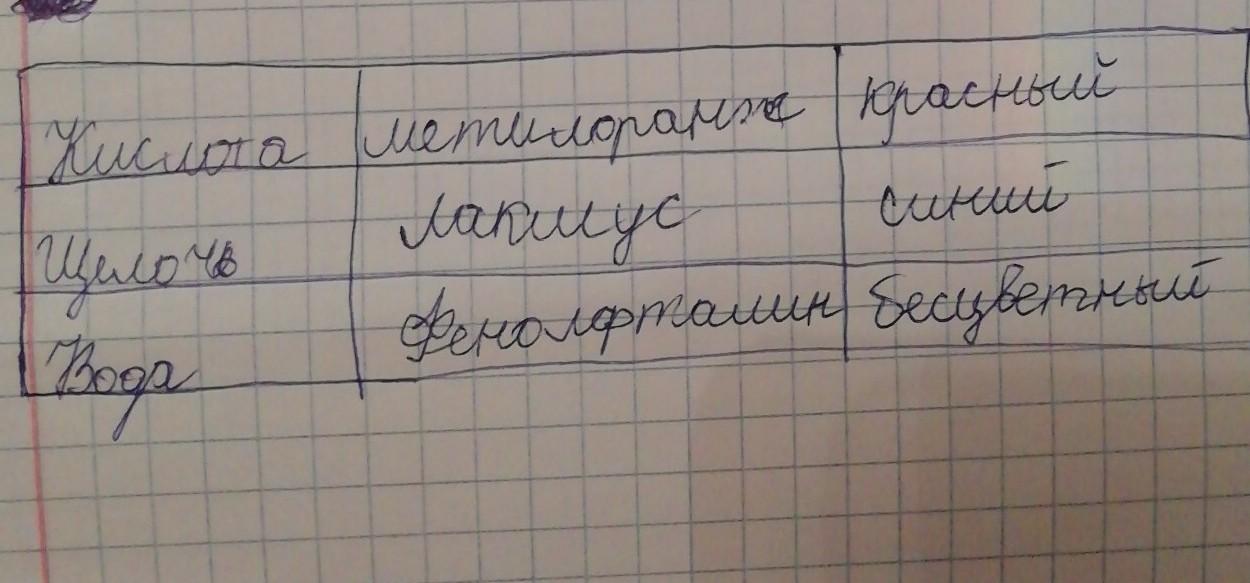 Кислота метилоранж красный
Щелочь лакмус синий
Вода Фенолфталин бесцветный